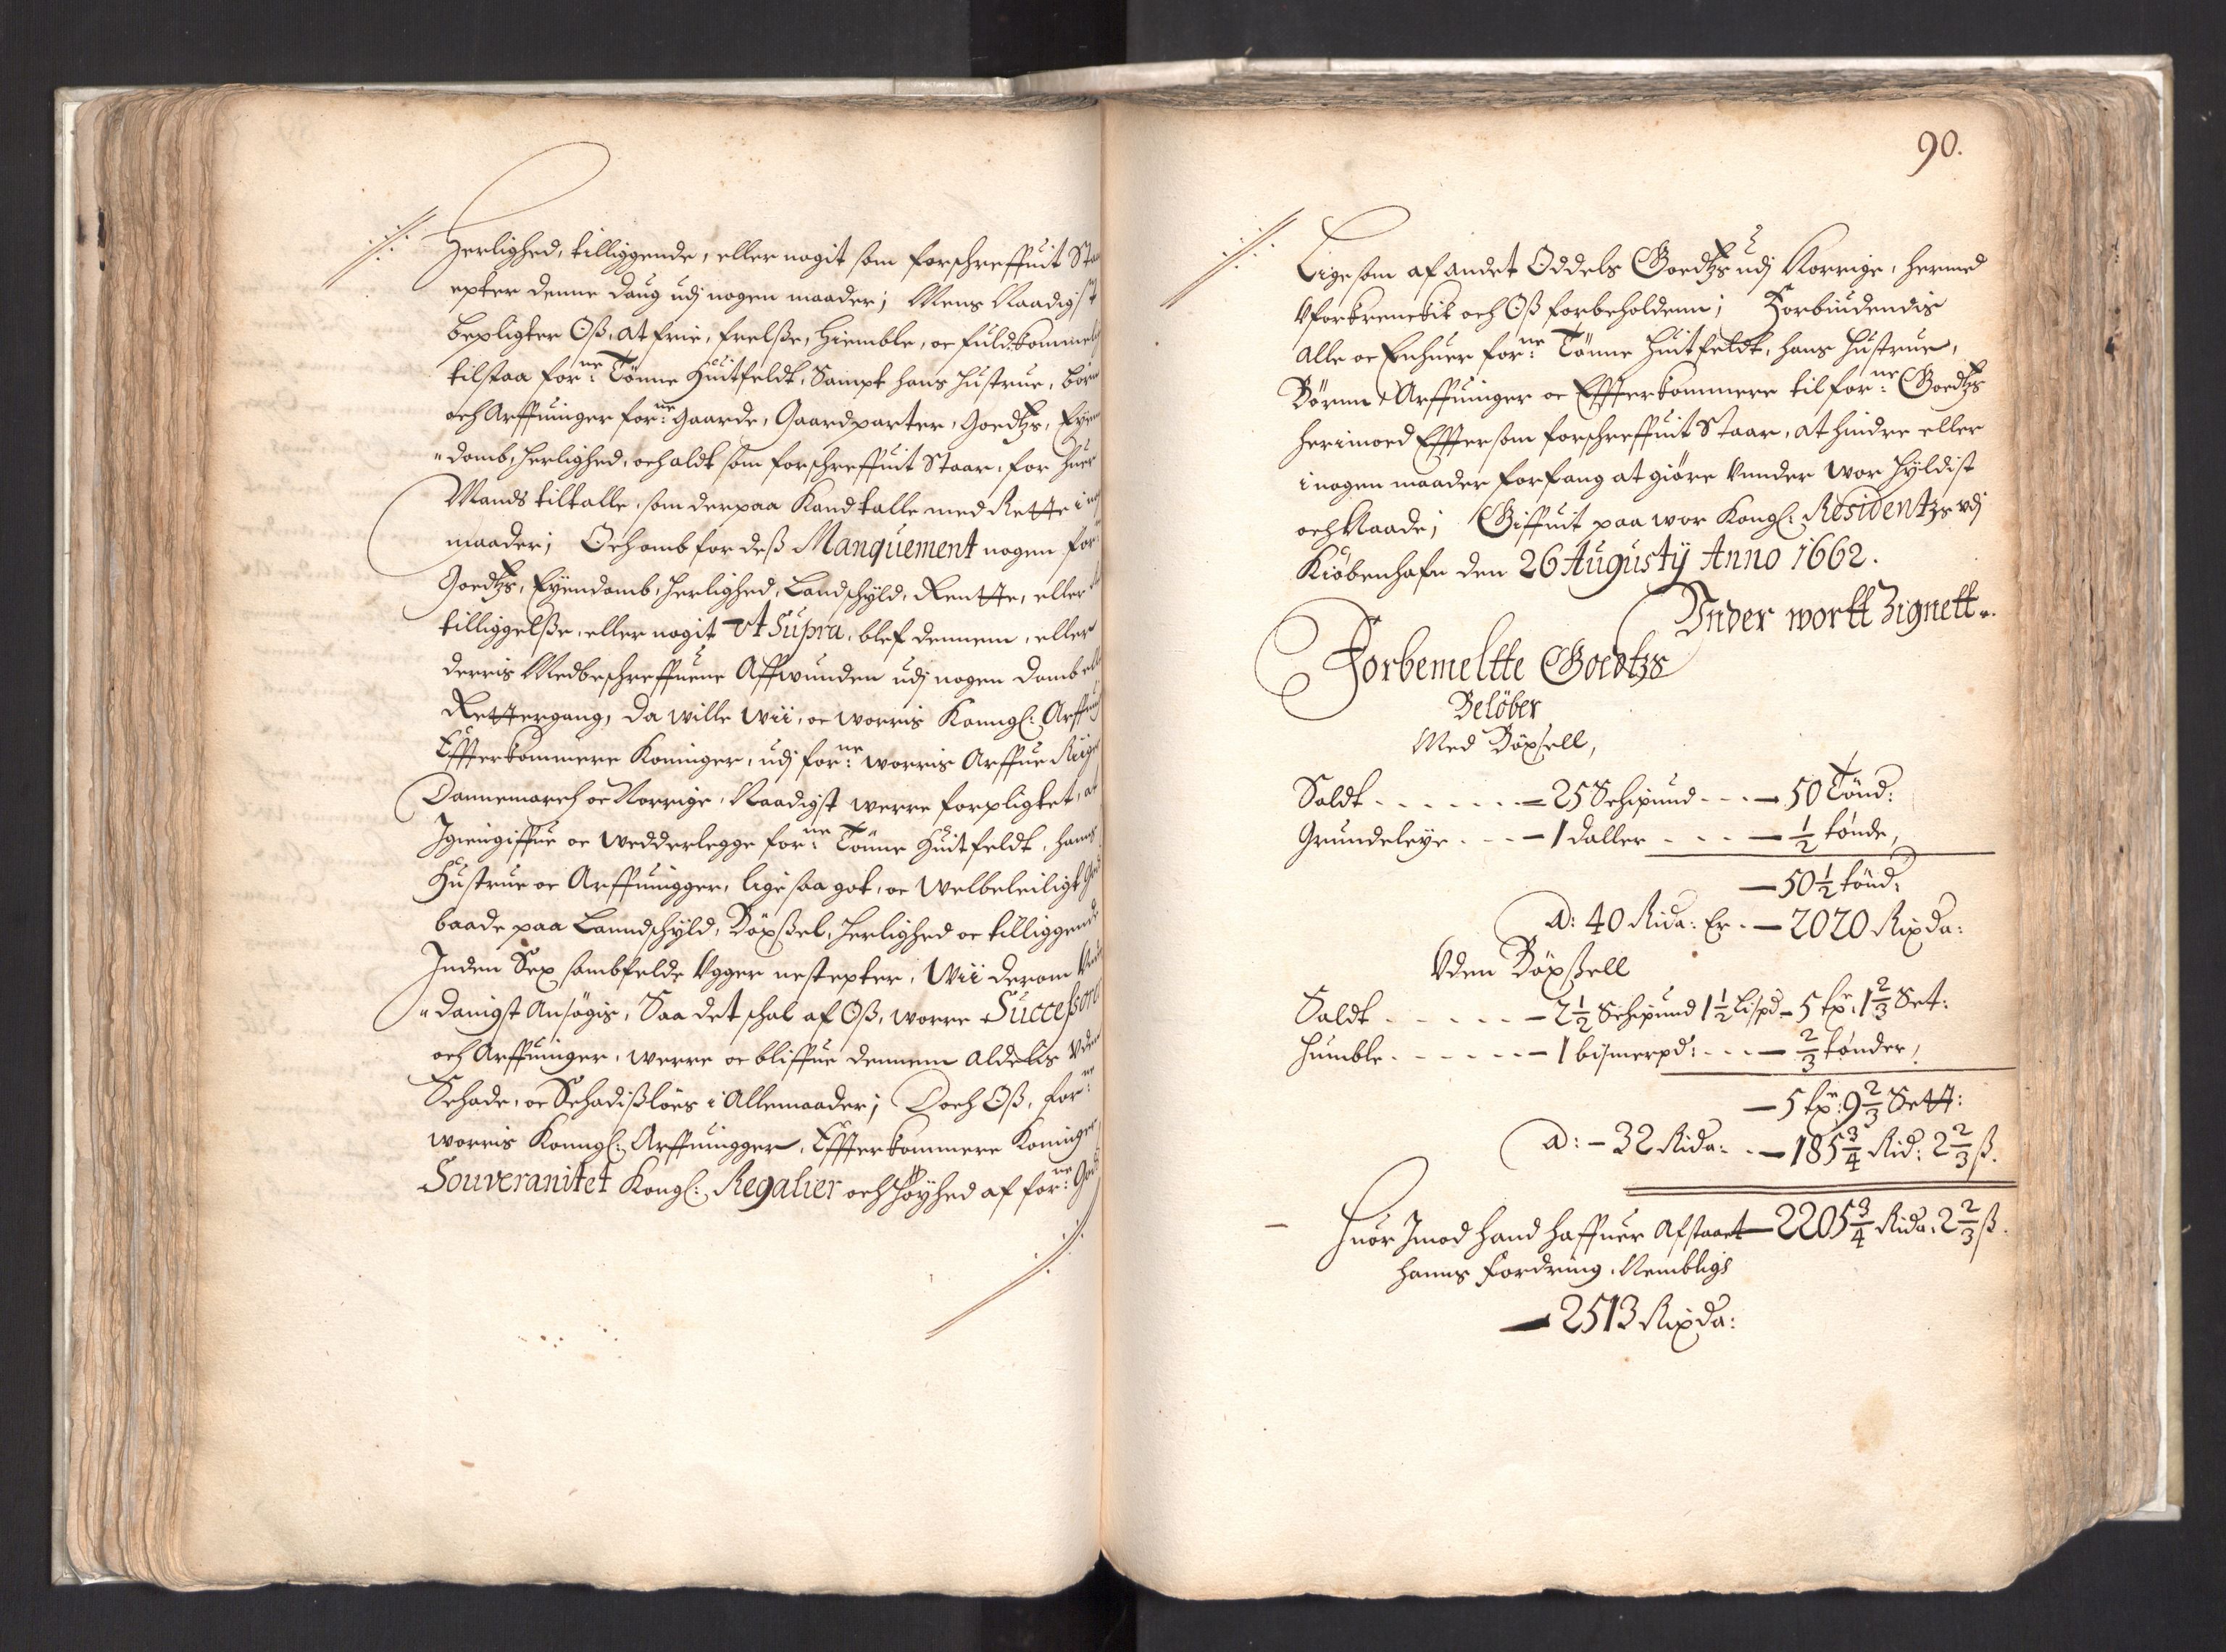 Herlighed, tilliggende, eller nogit som forschreffuit Sta
epter denne daug udj nogen maader; Mens Naadigst
bepligter Oß, at frie, frelße, Hiemble, oc fuldkommel
tilstaa for:ne Tönne Huitfeldt, Sampt hans Hustrue, börn
och Arffuinger for:ne Gaarde, Gaardparter, Goedtzs, Eyen
"domb, Herlighed, och aldt som forschreffuit Staar, for huer
Mands tiltalle, som derpaa Kand talle med Rette i
maader; Och omb for deß Manquement nogen for:
Goedtzs, Eyendomb, Herlighed, Landschyld, Rentte, eller
tilliggelße, eller nogit Vt Supra, blef dennem, eller
derris Medbeschreffuene Affwunden udj nogen domb ell
Rettergang, da wille Wii, oc worris Konngl: Arffui
Effterkommere Koninger, udj for:ne worris Arffue Riiger
Dannemarch oc Norrige, Naadigst werre forpligtet, at
Igiengiffue oc wedderlegge for:ne Tönne Huitfeldt, hans
Hustrue oc Arffuingger, lige saa got, oc welbeleiligt
baade paa Lanndschyld, Böxßel, Herlighed oc tilliggende
Inden Sex sambfelde Vgger nestepter, Wii derom Vnder
"danigst Ansögis, Saa det schal af Oß, worre Successorer
och Arffuinger, werre oc bliffue dennem aldelis Vden
Schade, oc Schadißlöes i Allemaader; Doch Oß, for:ne
worris Konngl: Arffuingger, Effterkommere Koninger
Souveranitet Kongl: Regalier och Höyhed af for:ne
90.
Lige som af andet Oddels Goedtzs udj Norrige, hermed
Vforkrenckit och Oß forbeholdenn; Forbiudendis
Alle oc Enhuer for:ne Tönne Huitfeldt, hans Hustrue,
Börnn Arffuinger oc Effterkommere til for:ne Goedtzs
herimoed Effter som forschreffuit Staar, at hindre eller
i nogen maader forfang at giöre Vnnder Wor Hyldist
och Naade; Giffuit paa wor Kongl: Residentzs udj
Kiöbenhafn den 26 Augustÿ Anno 1662.
Vnder wortt Zignett.
Forbemeltte Goedtzs
Belöber
Med Böxsell,
Saldt . . . . . . . — 25 Schipund . . . — 50 Tönd:
Grundeleye . . . — 1 daller . . . . — ½ tönde,
— 50 ½ tönd:
A: 40 Rida: Er . — 2020 Rixda:
Vden Böxßell
Saldt . . . . . . — 2 ½ Schipund 1 ½ lispd — 5 tr: 1 ⅔ Set:
Humble . . . . . . — 1 bismerpd: . . . — ⅔ tönder,
— 5 tr: 9 ⅔ Sett:
A: — 32 Rida: . — 185 ¾ Rid: 2 ⅔ ß.
Huor Imod hand haffuer Afstaaet — 2205 ¾ Rida: 2 ⅔ ß.
hanns fordring, Nembligs
— 2513 Rixda: